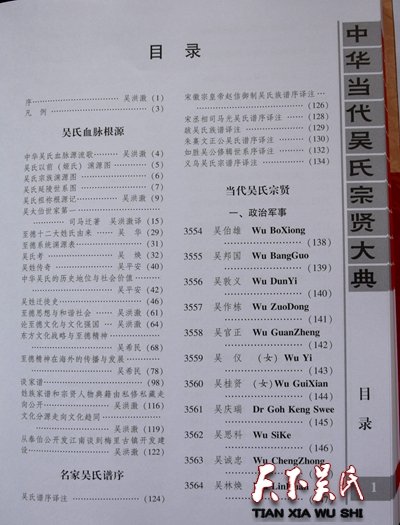 目 录
序 吴洪激 (1)
凡 例 (3)
吴氏血脉根源
中华吴氏血脉源流歌 吴洪激 (4)
吴氏以前（姬氏）渊源图 (5)
吴氏宗族渊源图 (6)
吴氏延陵世系图 (7)
吴氏相称根源记 吴洪激 (9)
吴太伯世家第一
司马迁著 吴洪激译 (15)
至德十二大姓由来 吴 华 (29)
至德系统渊源表 (31)
吴氏考 吴 焕 (32)
吴姓传奇 吴平安 (40)
中华吴氏的历史地位与社会价值
吴平安 (42)
吴姓迁徙史 (46)
至德思想与和谐社会 吴洪激 (61)
论至德文化与文化强国 吴洪激 (64)
东方文化战略与至德精神
吴希民 (68)
至德精神在海外的传播与发展
吴希民 (78)
谈家谱 (98)
姓族家谱和宗贤人物典籍由私修私藏走
向公开 吴洪激 (116)
文化分源走向文化趋同
吴洪激 (119)
从奉伯公开发江南谈到梅里古镇开发建
设 吴洪激 (122)
名家吴氏谱序
吴氏谱序译注 (124)
宋徽宗皇帝赵佶御制吴氏族谱序译注
(126)
宋丞相司马光吴氏谱序译注 (128)
跋吴氏族谱译注 (129)
朱熹文正公吴氏谱序译注 (130)
如胜吴公修辑世系序译注 (132)
义乌吴氏宗谱序译注 (134)
当代吴氏宗贤
一、政治军事
3554 吴伯雄 Wu BoXiong
(138)
3555 吴邦国 Wu BangGuo
(139)
3556 吴敦义 Wu DunYi
(140)
3557 吴作栋 Wu ZuoDong
(141)
3558 吴官正 Wu GuanZheng
(142)
3559 吴 仪 （女）Wu Yi
(143)
3560 吴桂贤 （女）Wu GuiXian
(144)
3561 吴庆瑞 Dr Goh Keng Swee
(145)
3562 吴思科 Wu SiKe
(146)
3563 吴诚忠 Wu ChengZhong
3564 吴林焕
中华当代吴氏宗贤大典
目录
1
天下吴氏
TIAN XIA WU SHI